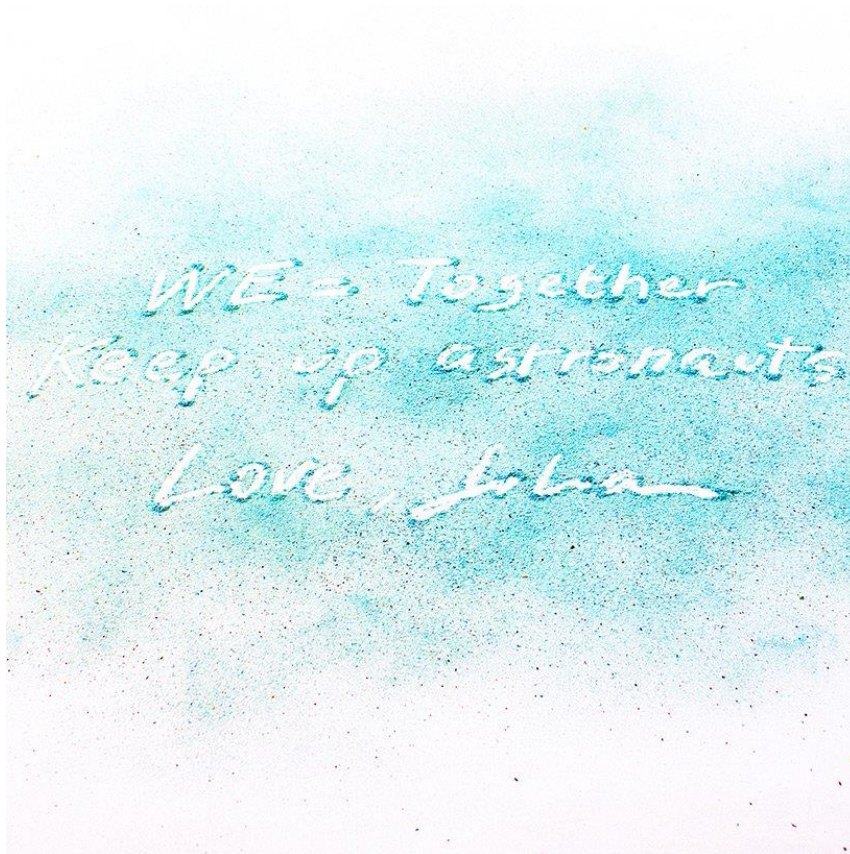 WE = Together
Keep up astronauts
Love,